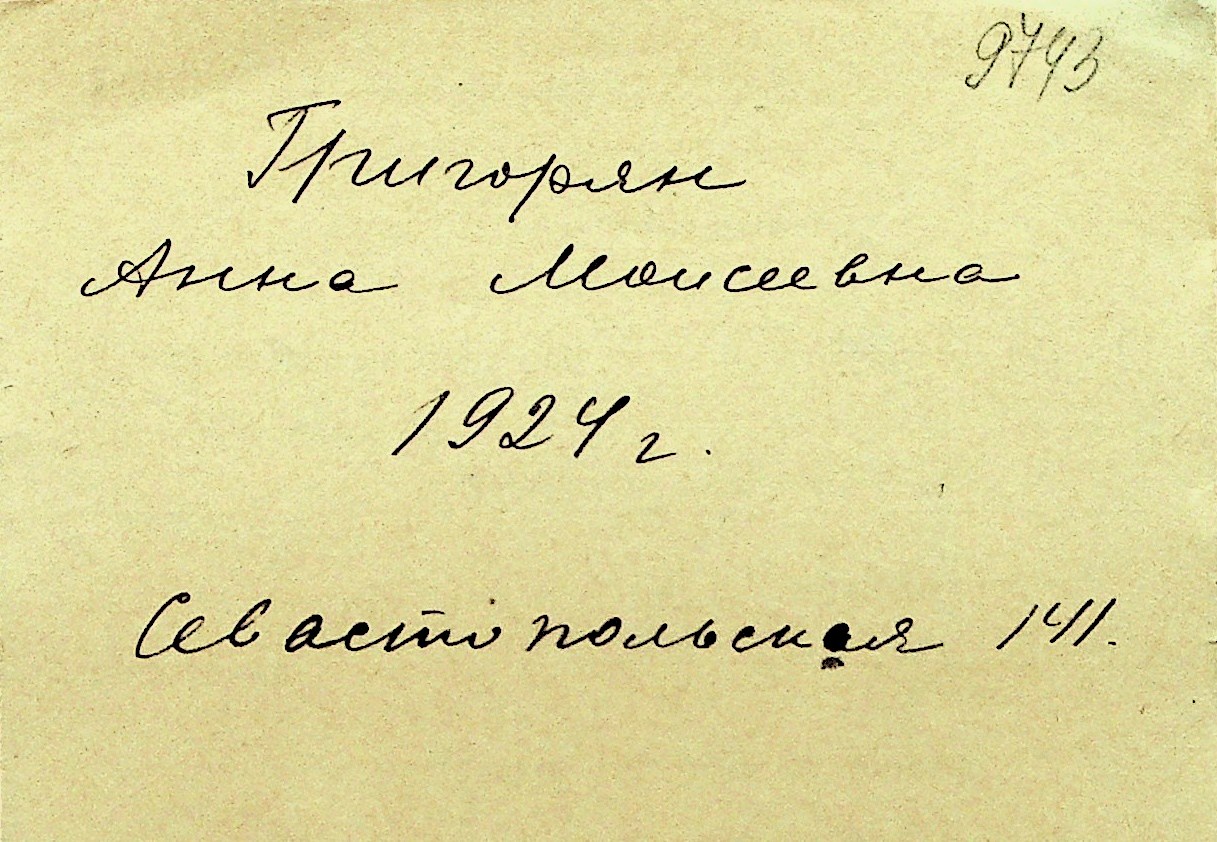 9743
Григорян
Анна Моисеевна
1924 г.
Севастопольская 141.